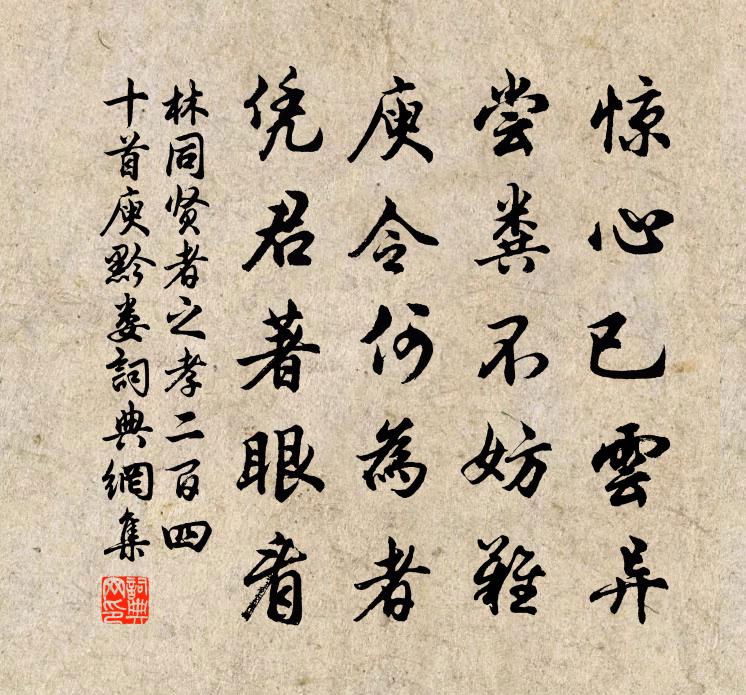 惊心已雲异
尝粪不妨難
庾令何為者
凭君著眼看
林同贤者之孝二百四
十首庾黔娄詞典網集
詞典
网印